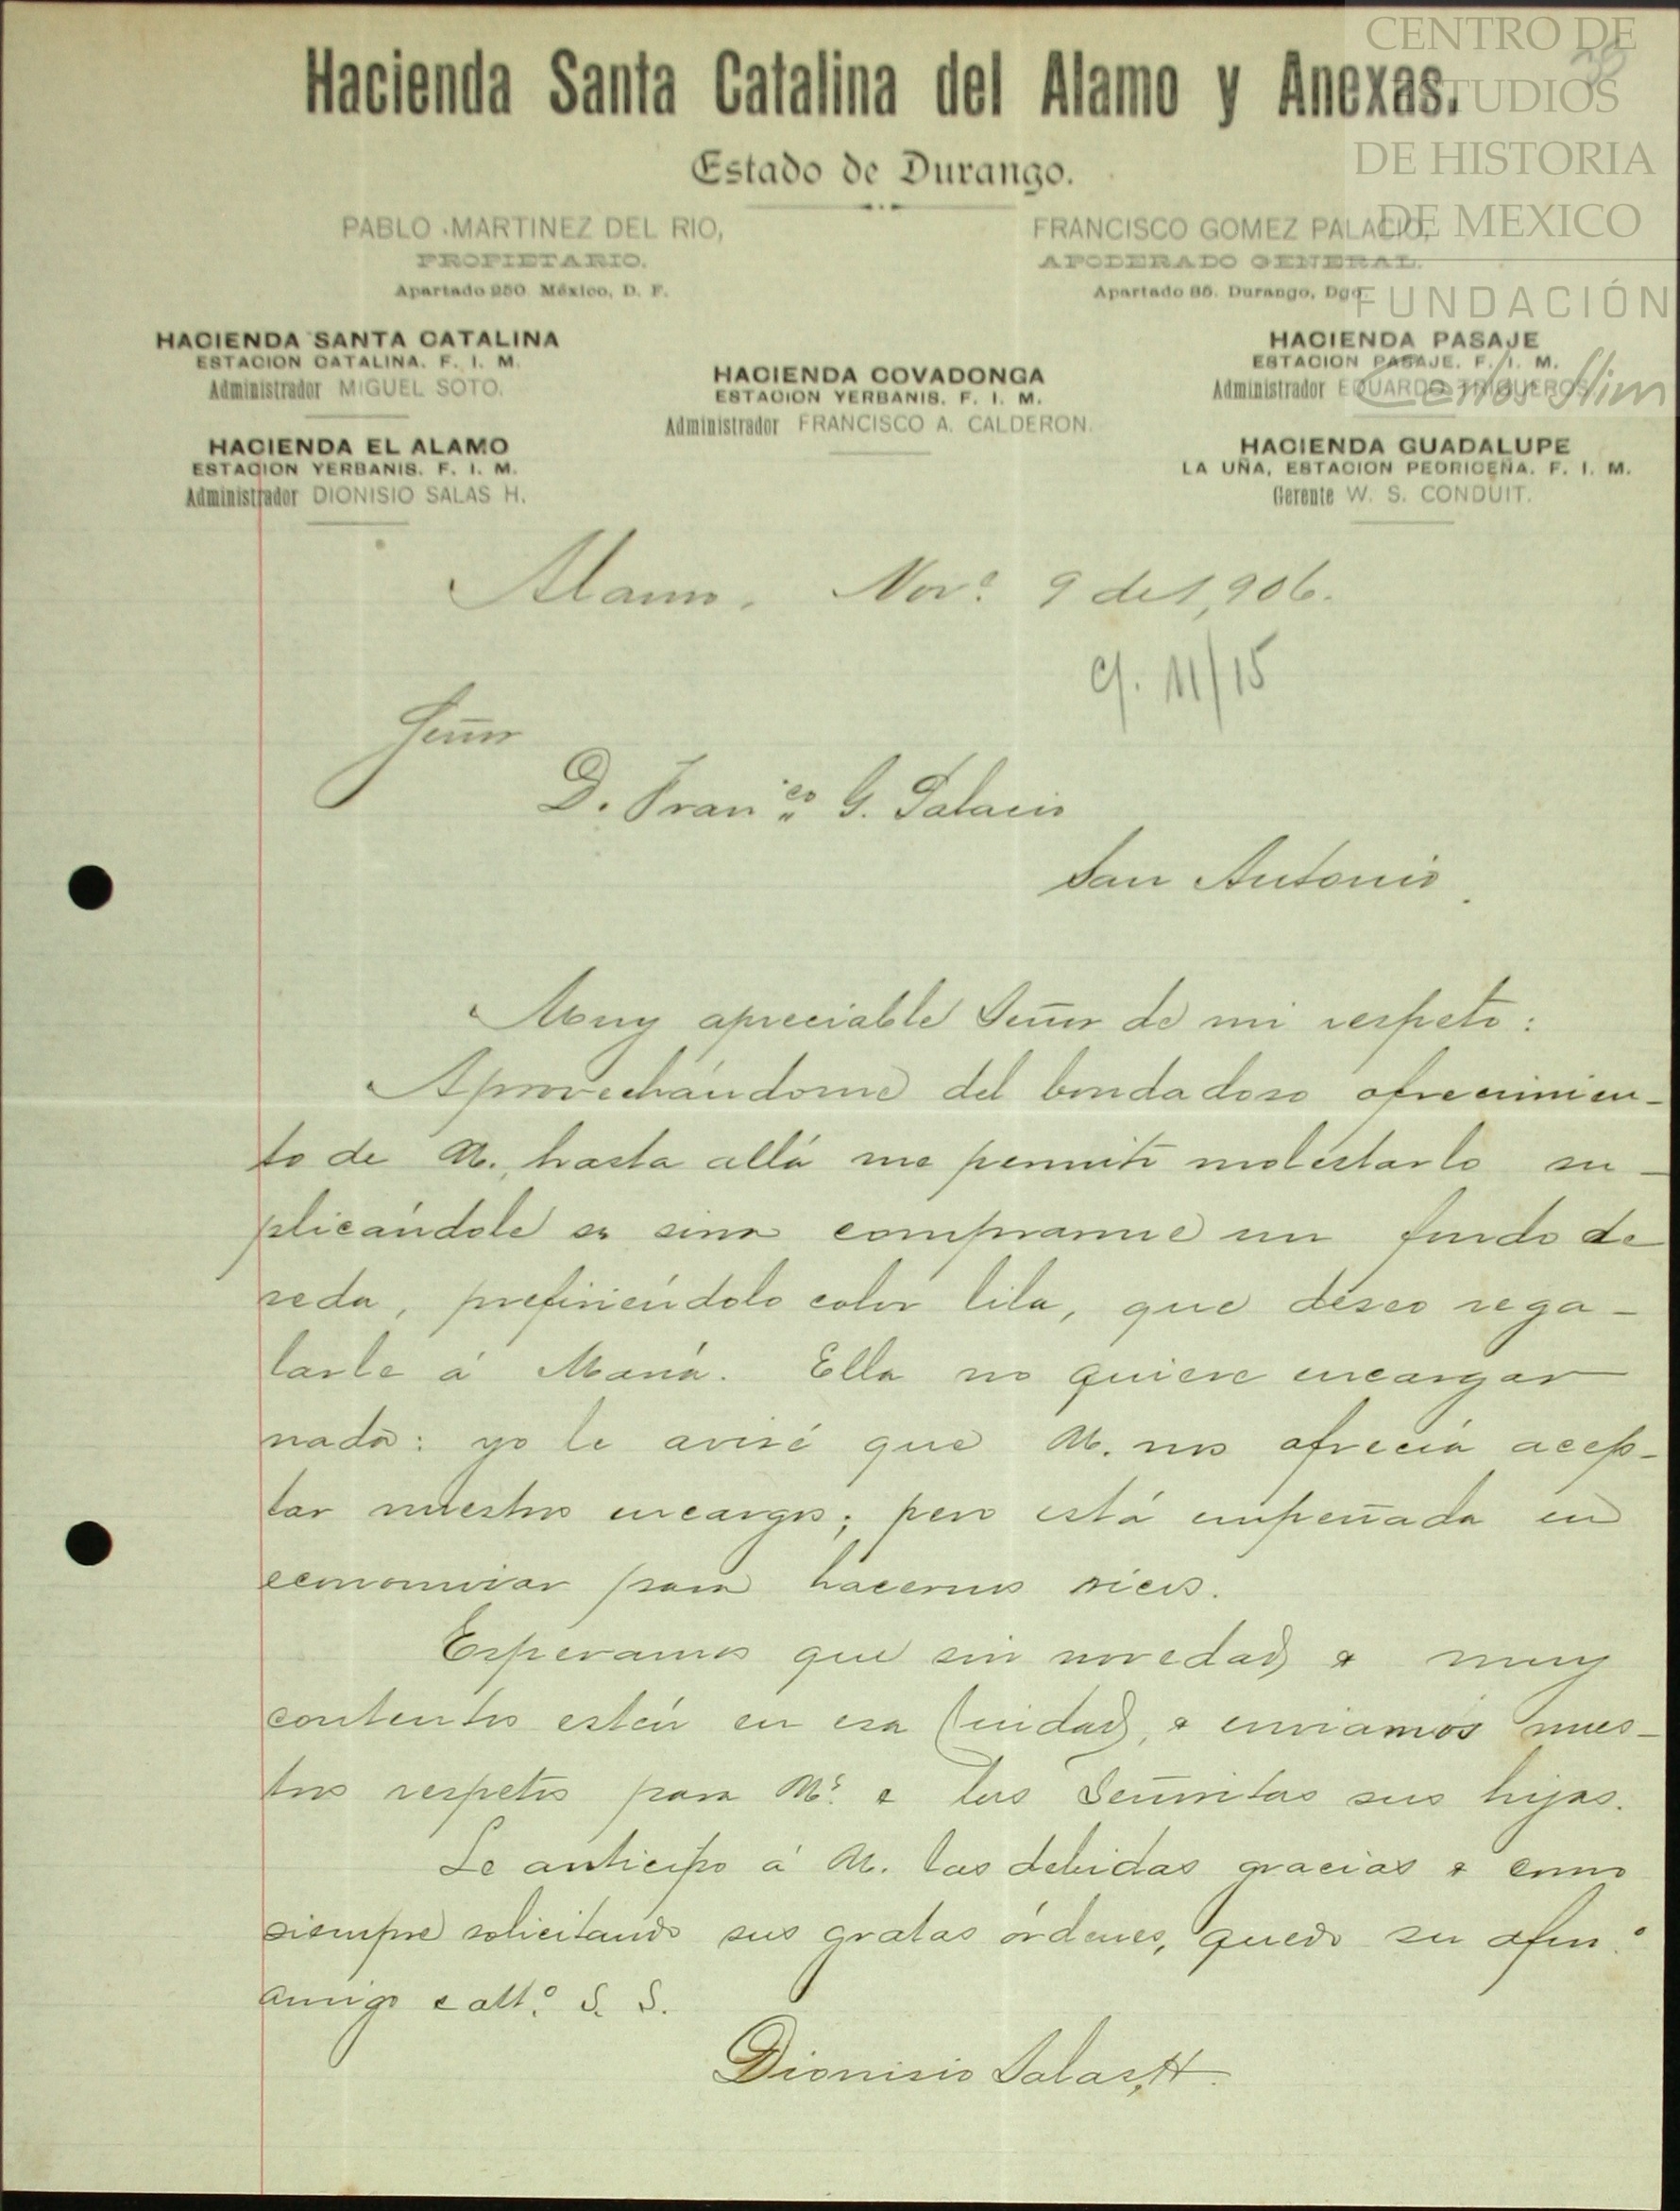 Hacienda Santa Catalina del Alamo y Anexas.
Estado de Durango.
PABLO MARTINEZ DEL RIO,
PROPIETARIO.
Apartado 250 México, D. F.
FRANCISCO GOMEZ PALACIO,
APODERADO GENERAL.
Apartado 86. Durango, Dgo.
HACIENDA SANTA CATALINA
ESTACION CATALINA. F. I. M.
Administrador MIGUEL SOTO.
HACIENDA EL ALAMO
ESTACION YERBANIS. F. I. M.
Administrador DIONISIO SALAS H.
HACIENDA COVADONGA
ESTACION YERBANIS. F. I. M.
Administrador FRANCISCO A. CALDERON.
HACIENDA PASAJE
ESTACION PASAJE. F. I. M.
Administrador EDUARDO TRIGUEROS.
HACIENDA GUADALUPE
LA UÑA, ESTACION PEDRICEÑA. F. I. M.
Gerente W. S. CONDUIT.
CENTRO DE
ESTUDIOS
DE HISTORIA
DE MEXICO
FUNDACIÓN
Carlos Slim
Alamo. Nov.e 9 de 1,906.
c/. 11/15
Señor
D. Fran.co G. Palacio
San Antonio.
Muy apreciable Señor de mi respeto:
Aprovechándome del bondadoso ofrecimien-
to de U., hasta allá me permito molestarlo su-
plicándole se sirva comprarme un fundo de
seda, prefiriéndolo color lila, que deseo rega-
larle á María. Ella no quiere encargar
nada: yo le avisé que U. nos ofrecía acep-
tar nuestros encargos; pero está empeñada en
economizar para hacernos ricos.
Esperamos que sin novedad & muy
contentos estén en esa Ciudad, & enviamos nues-
tros respetos para U. & las Señoritas sus hijas.
Le anticipo á U. las debidas gracias & como
siempre solicitando sus gratas órdenes, quedo su afmo.
amigo & att.o S. S.
Dionisio Salas H.